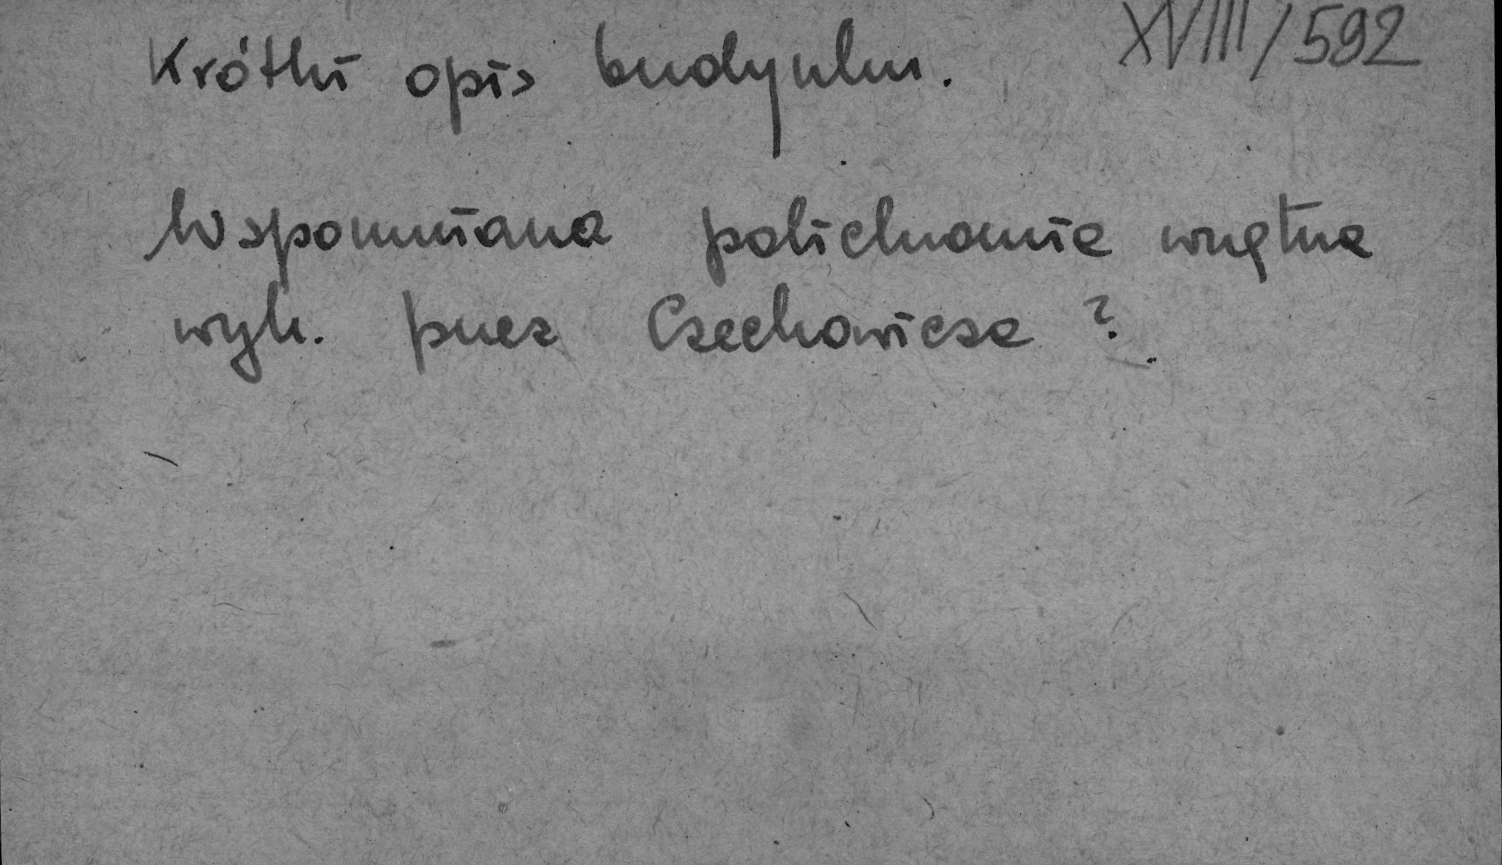 XVIII/592
Krótki opis budynku.
Wspomniana polichromia wnętrza
wyk. przez Czechowicza ?